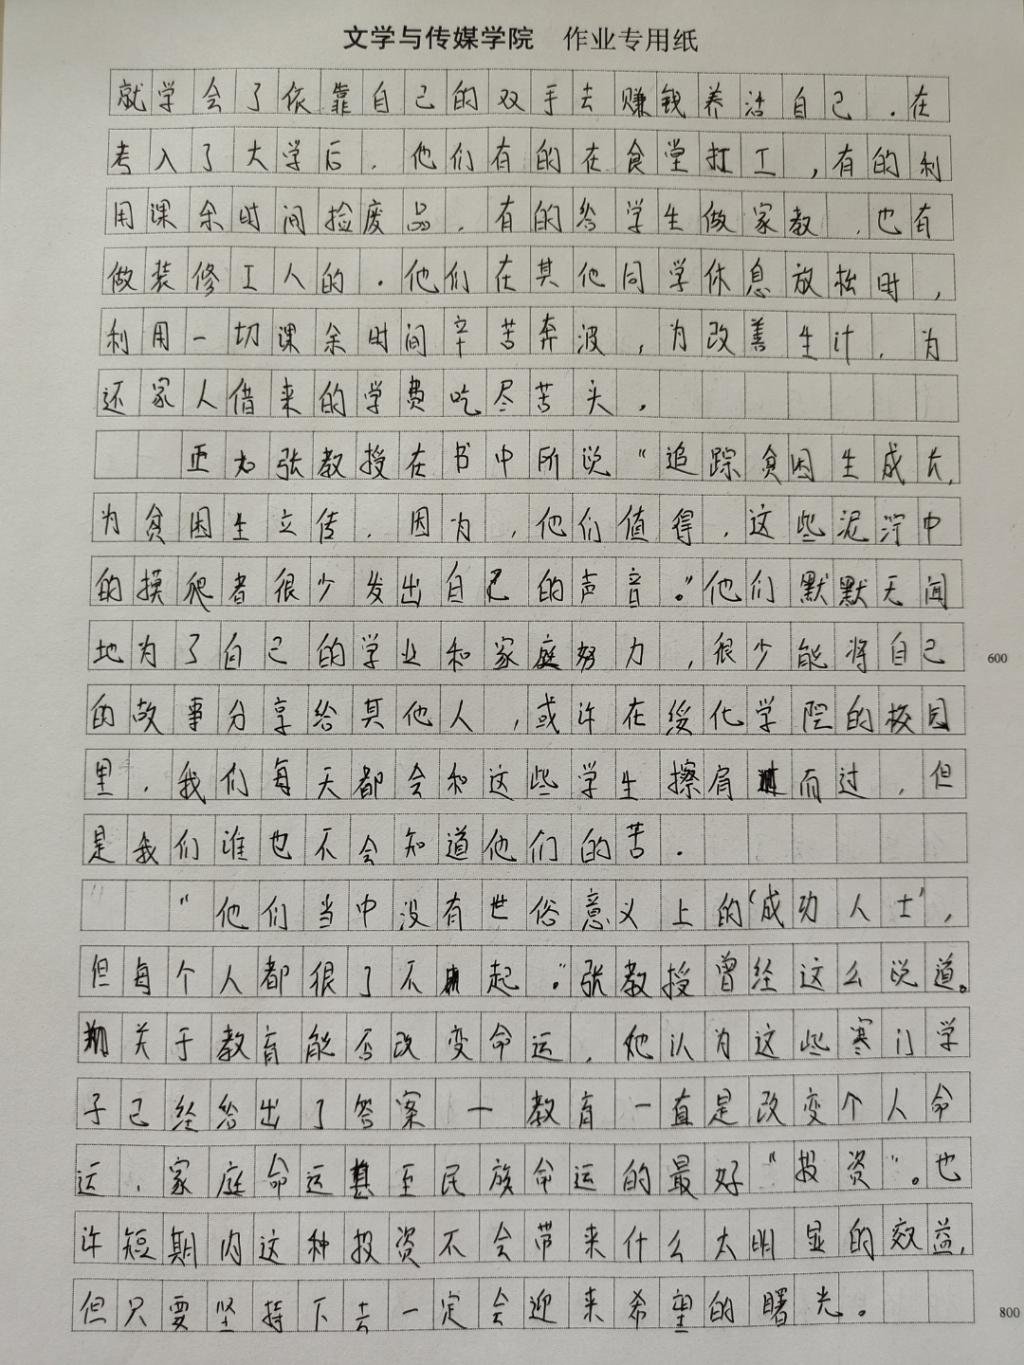 文学与传媒学院 作业专用纸
就学会了依靠自己的双手去赚钱养活自己.在
考入了大学后.他们有的在食堂打工,有的利
用课余时间捡废品.有的给学生做家教.也有
做装修工人的.他们在其他同学休息放松时,
利用一切课余时间辛苦奔波,为改善生计.为
还家人借来的学费吃尽苦头.
正如张教授在书中所说“追踪贫困生成长,
为贫困生立传.因为,他们值得.这些泥泞中
的摸爬者很少发出自己的声音。”他们默默无闻
地为了自己的学业和家庭努力,很少能将自己
的故事分享给其他人,或许在绥化学院的校园
里.我们每天都会和这些学生擦肩而过.但
是我们谁也不会知道他们的苦.
“他们当中没有世俗意义上的‘成功人士’,
但每个人都很了不起。”张教授曾经这么说道。
关于教育能否改变命运.他认为这些寒门学
子已经给出了答案—教育一直是改变个人命
运.家庭命运甚至民族命运的最好“投资”。也
许短期内这种投资不会带来什么太明显的效益,
但只要坚持下去一定会迎来希望的曙光。
600
800